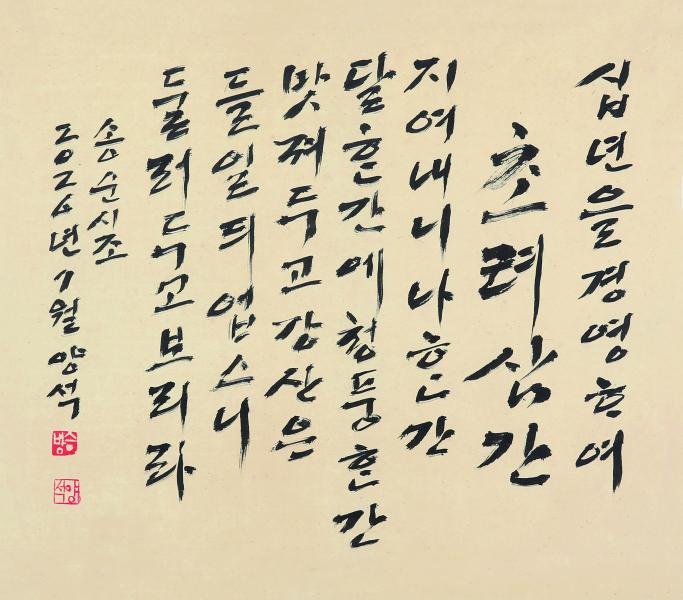 십년을경영ᄒᆞ여
초려삼간
지여내니나ᄒᆞᆫ간
달ᄒᆞᆫ간에청풍ᄒᆞᆫ간
맛져두고강산은
들일듸업스니
둘러두고보리라
송순시조
2026년 1월 양석
양석